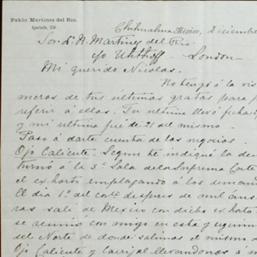 Pablo Martínez del Río.
Chihuahua, México, Diciembre
Sor. D. N. Martínez del Río
c/o Uhthoff
London
Mi querido Nicolas.
No tengo á la vis
meros de tus últimas gratas para
referir á ellas. Tu última lleva fecha
y mi última fué de 21 del mismo.
Paso á darte cuenta de los negocios.
Ojo Caliente. Segun he indicado la de
turnó á la 3ª Sala de la Suprema Corte
el exhorto emplazando á los deman
El dia 1º del corte. despues de mil ans
ras salí de México con dicho exhorto
se reunió conmigo en esta y seguim
del Norte de donde salimos el mismo
Ojo Caliente y Carrizal llevandonos á